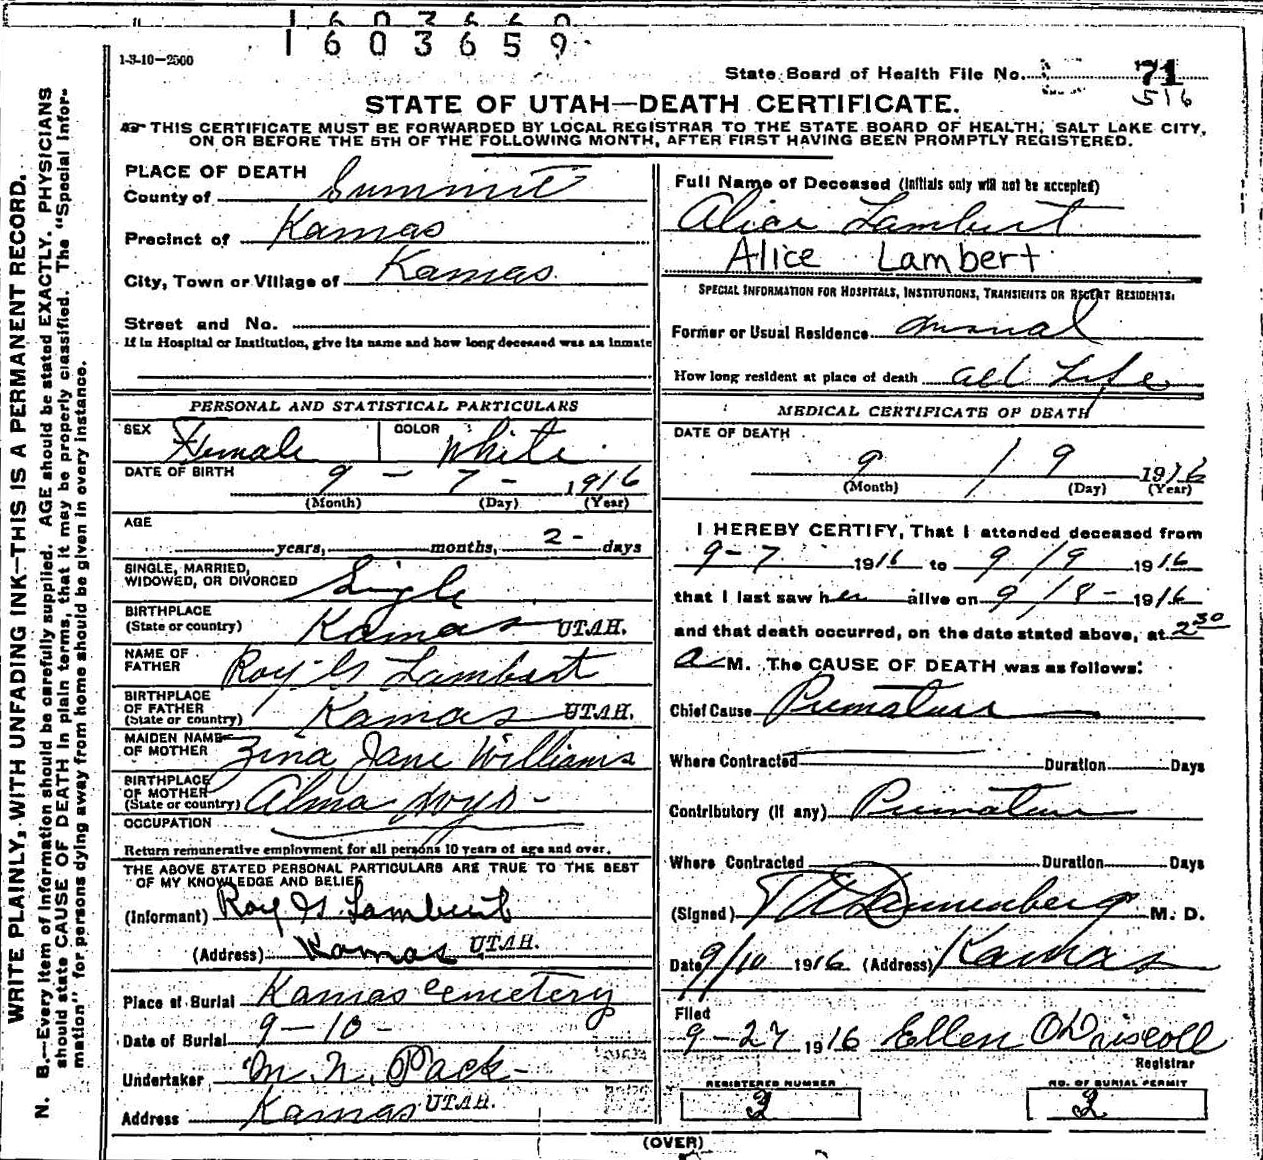 1603659
1-3-10-2500
State Board of Health File No. 71
516
STATE OF UTAH—DEATH CERTIFICATE.
THIS CERTIFICATE MUST BE FORWARDED BY LOCAL REGISTRAR TO THE STATE BOARD OF HEALTH, SALT LAKE CITY,
ON OR BEFORE THE 5TH OF THE FOLLOWING MONTH, AFTER FIRST HAVING BEEN PROMPTLY REGISTERED.
WRITE PLAINLY, WITH UNFADING INK—THIS IS A PERMANENT RECORD.
N. B.—Every item of information should be carefully supplied. AGE should be stated EXACTLY. PHYSICIANS
should state CAUSE OF DEATH in plain terms, that it may be properly classified. The "Special Infor-
mation" for persons dying away from home should be given in every instance.
PLACE OF DEATH
County of Summit
Precinct of Kamas
City, Town or Village of Kamas
Street and No.
If in Hospital or Institution, give its name and how long deceased was an inmate
PERSONAL AND STATISTICAL PARTICULARS
SEX Female COLOR White
DATE OF BIRTH 9 - 7 - 1916
(Month) (Day) (Year)
AGE
years, months, 2 - days
SINGLE, MARRIED,
WIDOWED, OR DIVORCED Single
BIRTHPLACE
(State or country) Kamas UTAH.
NAME OF
FATHER Roy G Lambert
BIRTHPLACE
OF FATHER
(State or country) Kamas UTAH.
MAIDEN NAME
OF MOTHER Zina Jane Williams
BIRTHPLACE
OF MOTHER
(State or country) Alma
OCCUPATION
Return remunerative employment for all persons 10 years of age and over.
THE ABOVE STATED PERSONAL PARTICULARS ARE TRUE TO THE BEST
OF MY KNOWLEDGE AND BELIEF
(Informant) Roy G Lambert
(Address) Kamas UTAH.
Place of Burial Kamas Cemetery
Date of Burial 9-10-
Undertaker M. N. Pack
Address Kamas UTAH.
Full Name of Deceased (Initials only will not be accepted)
Alice Lambert
Alice Lambert
SPECIAL INFORMATION FOR HOSPITALS, INSTITUTIONS, TRANSIENTS OR RECENT RESIDENTS.
Former or Usual Residence
How long resident at place of death all Life
MEDICAL CERTIFICATE OF DEATH
DATE OF DEATH
9 / 9 1916
(Month) (Day) (Year)
I HEREBY CERTIFY, That I attended deceased from
9-7 1916 to 9/9 1916
that I last saw her alive on 9/8- 1916
and that death occurred, on the date stated above, at 2 30
a M. The CAUSE OF DEATH was as follows:
Chief Cause Premature
Where Contracted Duration Days
Contributory (if any) Premature
Where Contracted Duration Days
(Signed) Dannenberg M. D.
Date 9/10 1916 (Address) Kamas
Filed
9-27 1916 Ellen O'Driscoll
Registrar
REGISTERED NUMBER
2
NO. OF BURIAL PERMIT
2
(OVER)